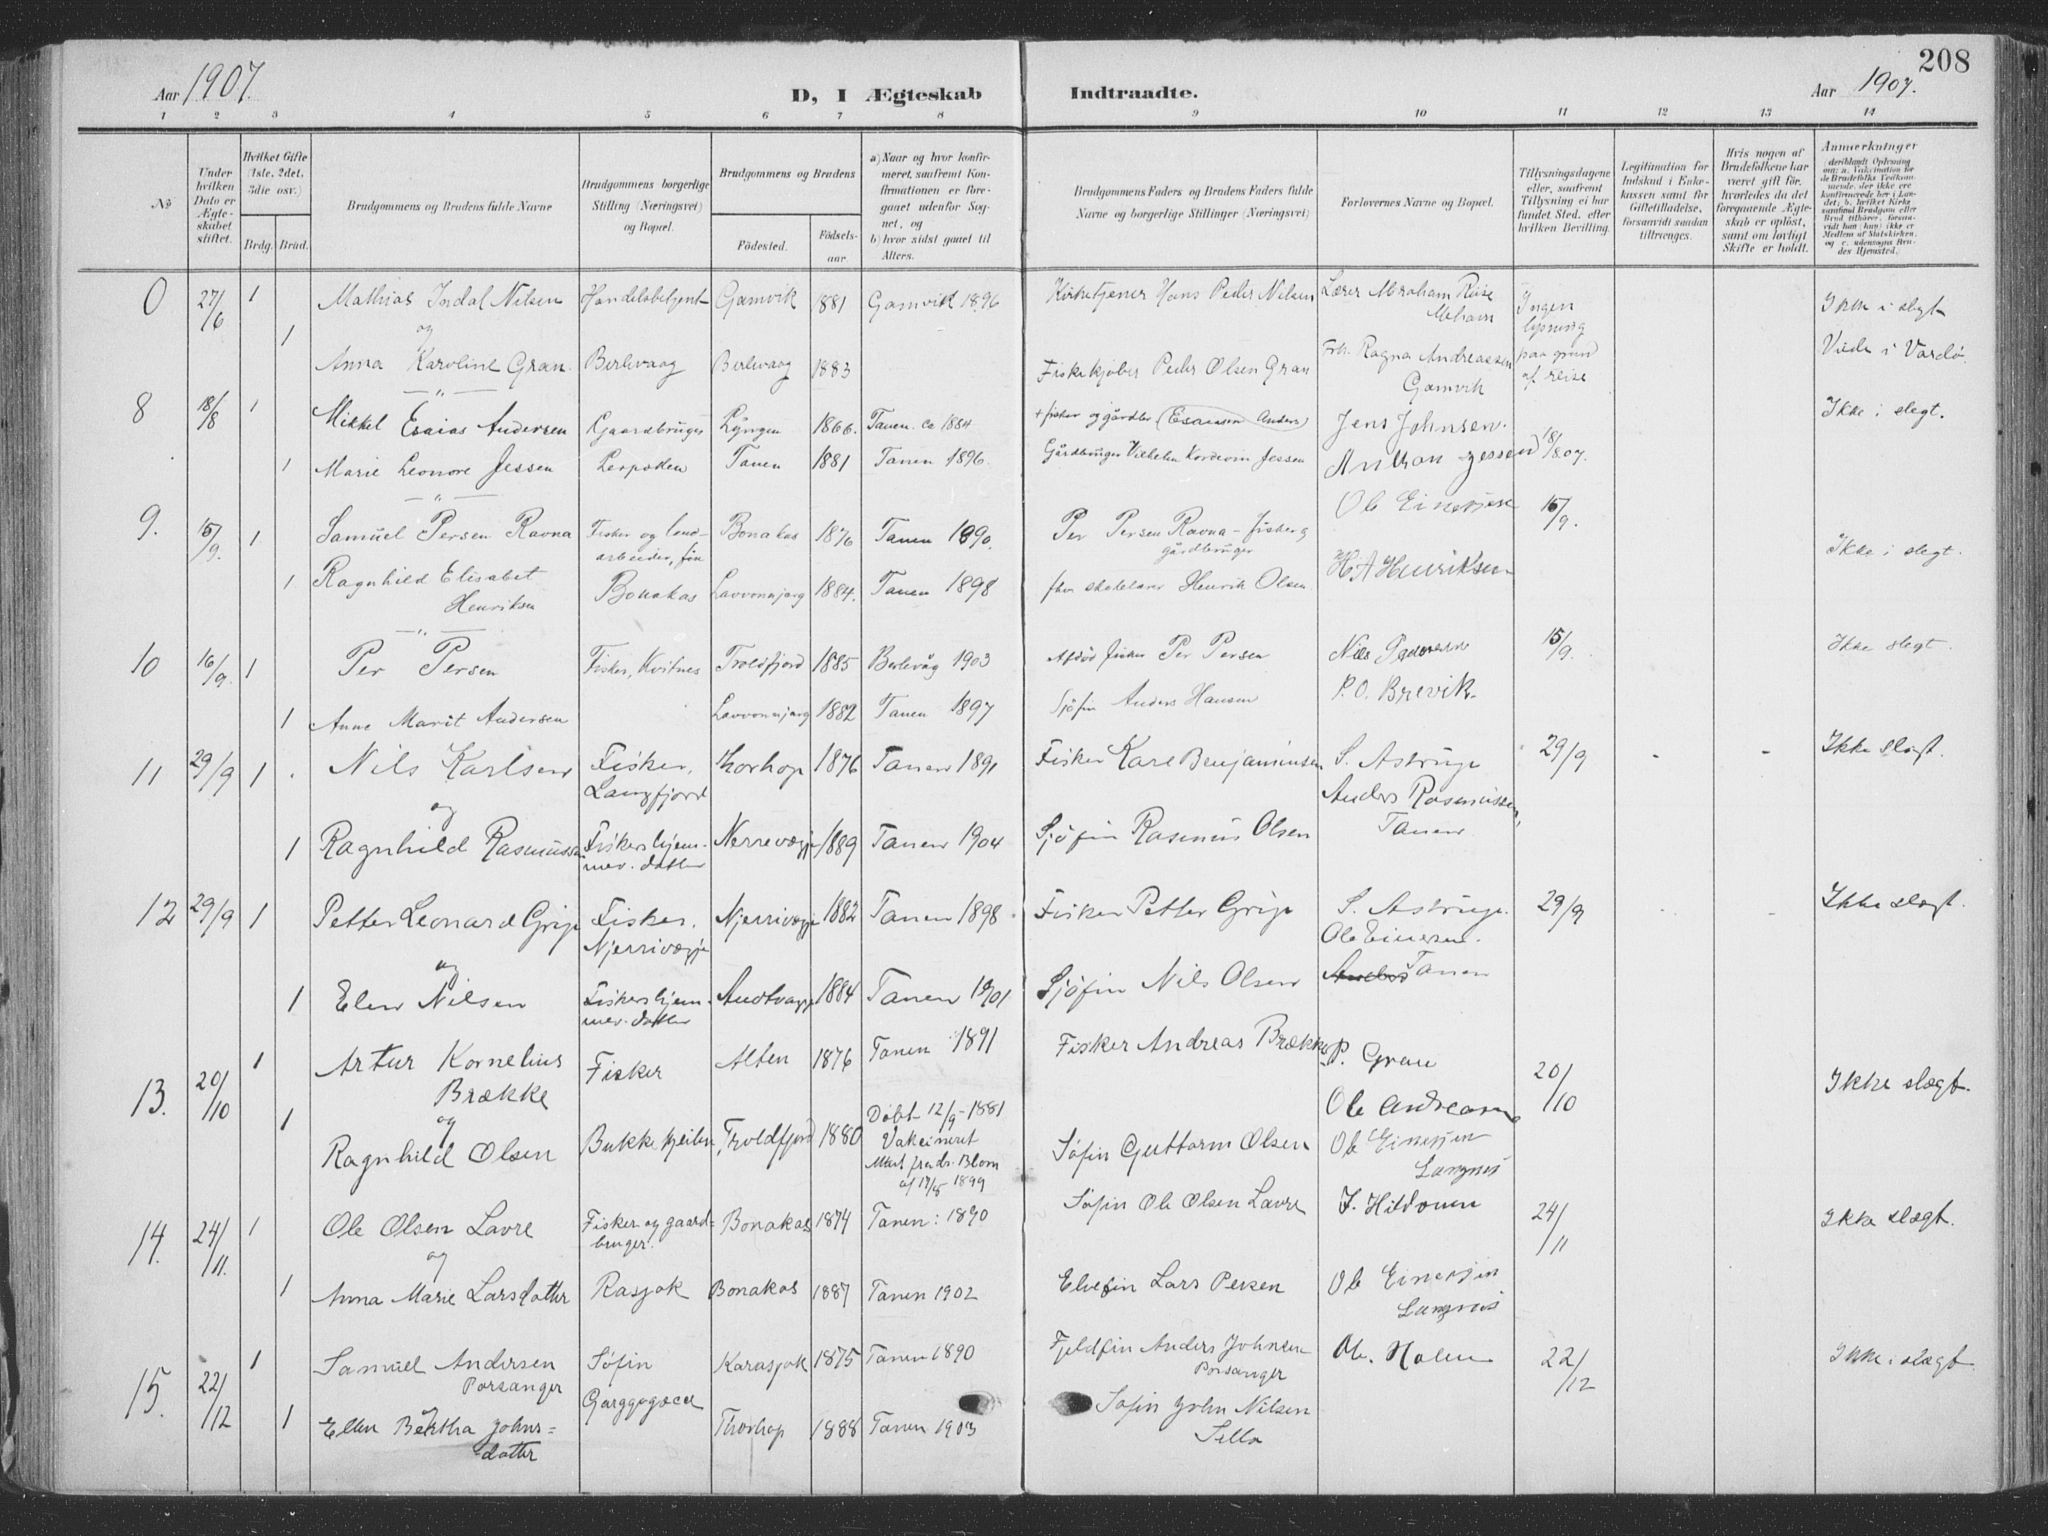 208
Aar 1907.
D, I Ægteskab Indtraadte.
Aar 1907.
1 2 3 4 5 6 7 8 9 10 11 12 13 14
№
Under hvilken Dato er Ægteskabet stiftet.
Hvilket Gifte (1ste, 2det, 3die osv.)
Brdg. Brud.
Brudgommens og Brudens fulde Navne
Brudgommens borgerlige Stilling (Næringsvei) og Bopæl.
Brudgommens og Brudens
Fødested.
Fødselsaar.
a) Naar og hvor konfirmeret, saafremt Konfirmationen er foregaaet udenfor Sognet, og
b) hvor sidst gaaet til Alters.
Brudgommens Faders og Brudens Faders fulde Navne og borgerlige Stillinger (Næringsvei)
Forlovernes Navne og Bopæl.
Tillysningsdagene eller, saafremt Tillysning ei har fundet Sted, efter hvilken Bevilling.
Legitimation for Indskud i Enkekassen samt for Giftetilladelse, forsaavidt saadan tiltrænges.
Hvis nogen af Brudefolkene har været gift før, hvorledes da det foregaaende Ægteskab er opløst, samt om lovligt Skifte er holdt.
Anmerkninger
0 27/6 1 Mathias Indal Nilsen Handelsbetjent Gamvik 1881 Gamvik 1896 Kirketjener Hans Peder Nilsen Lærer Abraham Reise Mehavn Ingen lysning paa grund af reise Ikke i slegt
og
1 Anna Karoline Gran. Berlevaag Berlevaag 1883 Fiskekjøber Peder Olsen Gran Frk. Ragna Andreassen Gamvik Viede i Vardø.
8 18/8 1 Mikkel Esaias Andersen Gaardbruger Lyngen 1866. Tanen ca 1884 + fisker og gårdbr (Esaiassen Anders) Jens Johnsen. 18/8 07. Ikke i slegt.
1 Marie Leonore Jessen Tanen 1881 Tanen 1896. Gårdbruger Vilhelm Jessen Anthon Jessen
9. 15/9. 1 Samuel Persen Ravna Fisker og landarbeider, fin Bonakas 1876 Tanen 1890. Per Persen Ravna - fisker g gårdbruger Ole Einersen 15/9. Ikke i slegt.
1 Ragnhild Elisabet Henriksen Bonakas Lavvonnjarg 1884. Tanen 1898 Henrik Olsen H A Henriksen
10 16/9. 1 Per Persen Fisker, Kvitnes Troldfjord 1885 Berlevåg 1903 Afdød fisker Per Persen Nils Pedersen 15/9. Ikke slegt.
1 Anne Marit Andersen Lavvonnjarg 1882 Tanen 1897 Sjøfin Anders Hansen P. O. Brevik.
11 29/9 1 Nils Karlsen Fisker, Langfjord Thorhop 1876 Tanen 1891 Fisker Karl Benjaminsen S. Astrup 29/9 Ikke slegt.
og
1 Ragnhild Rasmussen Fiskers hjemmev. datter Nerrevægje 1889 Tanen 1904 Sjøfin Rasmus Olsen Anders Rasmussen, Tanen
12 29/9 1 Petter Leonard Grip Fisker. Njerrivægje Njerrivægje 1882 Tanen 1898. Fisker Petter Grip S. Astrup. 29/9 Ikke slægt.
og
1 Elen Nilsen Fiskers hjemmev. datter Austvagge 1884 Tanen 1901 Sjøfin Nils Olsen Ole Einersen. Tanen
13. 20/10 1 Artur Kornelius Brække Fisker Alten 1876 Tanen 1891 Fisker Andreas Brække P. Gran 20/10 Ikke slægt.
og
1 Ragnhild Olsen Bukkekjeilen Troldfjord 1880 Døbt 12/9-1881 Vakcineret Attest fra dr. Blom af 17/5 1899 Søfin Guttorm Olsen Ole Andreassen
Ole Einersen Langnes
14. 24/11. 1 Ole Olsen Lavre Fisker og gaardbruger. Bonakas 1874 Tanen: 1890 Søfin Ole Olsen Lavre F. Hildonen 24/11 Ikke slægt.
og
1 Anna Marie Larsdatter Rasjok Bonakas 1887 Tanen 1902 Elvefin Lars Persen Ole Einersen Langnes
15. 22/12 1 Samuel Andersen Porsanger Søfin Karasjok 1875 Tanen 1890 Fjeldfin Anders Johnsen Porsanger Ole. Holm 22/12 Ikke i slægt
1 Ellen Bertha Johnsdatter Garggogæcce Thorhop 1888 Tanen 1903 Søfin John Nilsen Silla